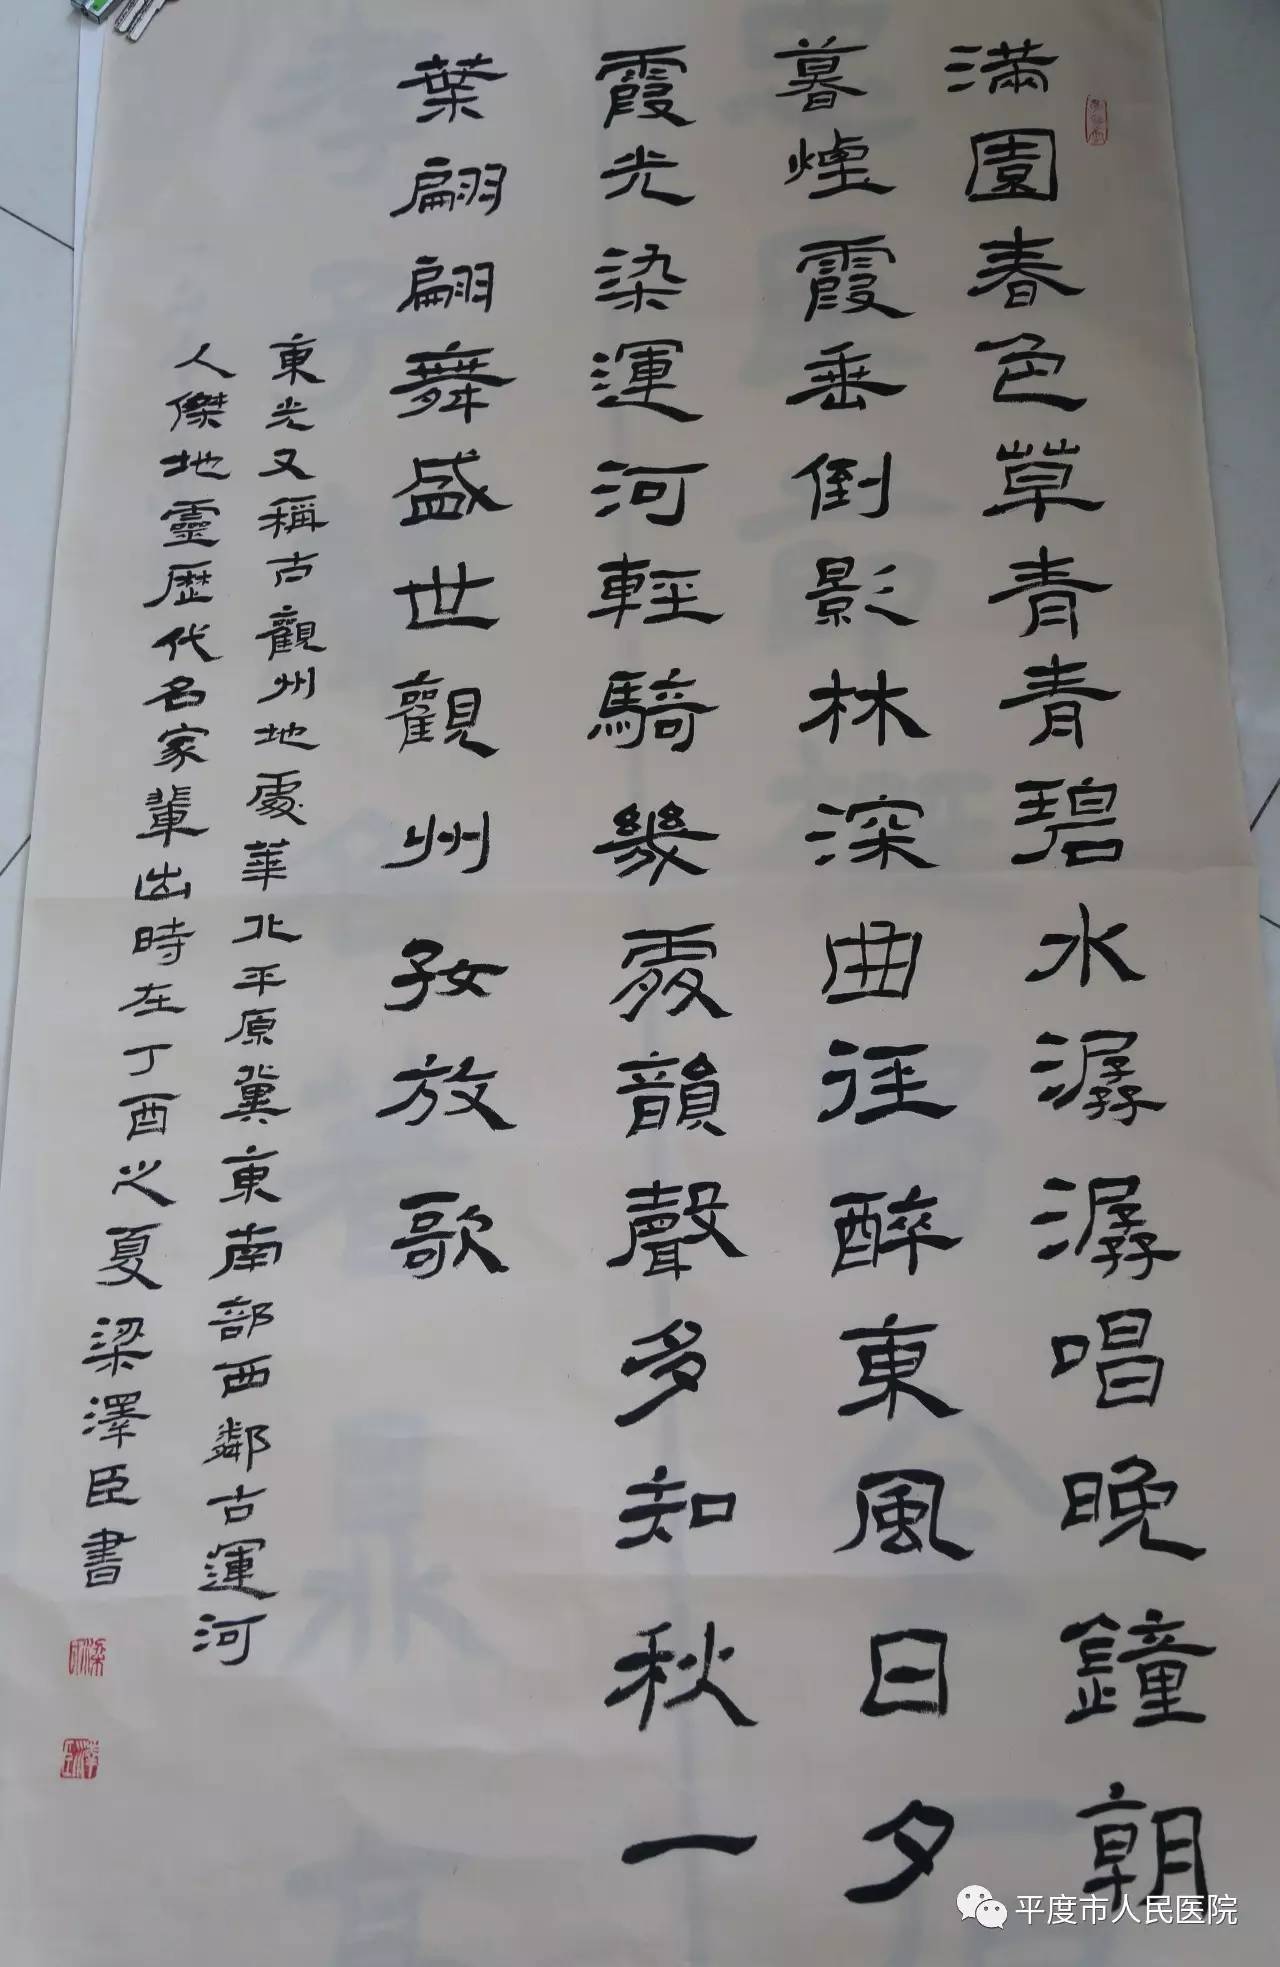 満園春色草青青碧水潺潺唱晚鐘朝
暮煙霞垂倒影林深曲徑醉東風日夕
霞光染運河輕騎幾處韻聲多知秋一
葉翩翩舞盛世觀州放歌
東光又稱古觀州地處華北平原冀東南部西鄰古運河
人傑地靈歷代名家輩出時在丁酉之夏梁澤臣書
平度市人民医院